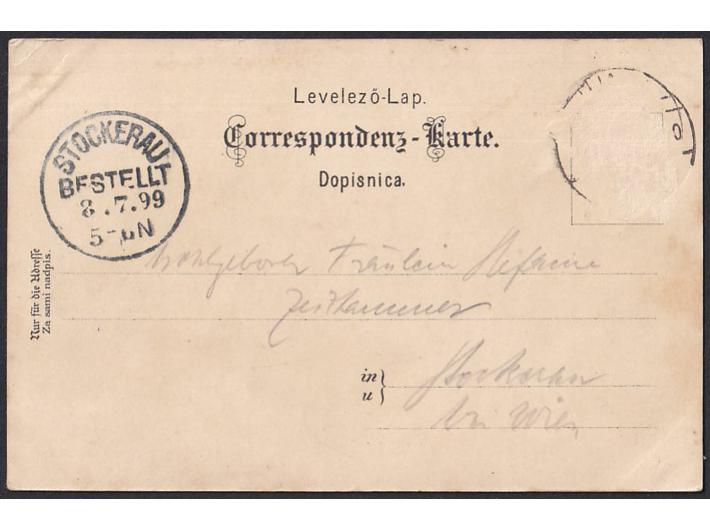 Levelező-Lap.
Correspondenz-Karte.
Dopisnica.
STOCKERAU
BESTELLT
8.7.99
5-µN
Nur für die Adresse
Za sami nadpis.
Wohlgeboren Fräulein Stefanie
Zeithammer
in
u
Stockerau
bei Wien